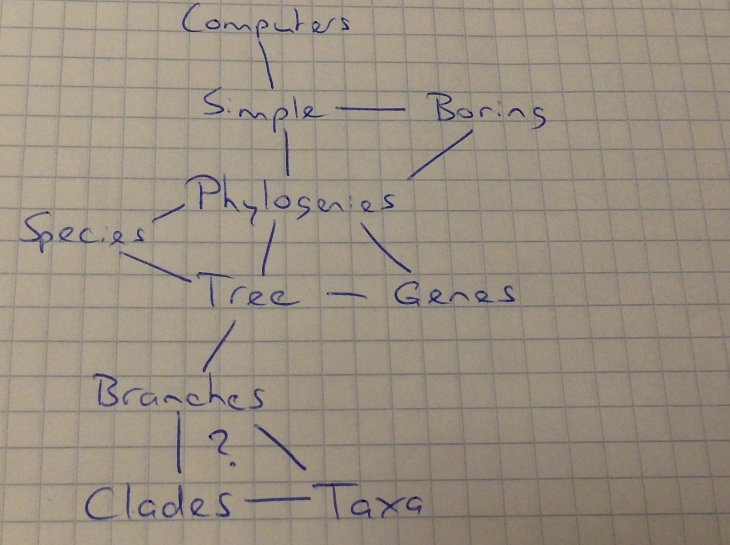 Computers
Simple Boring
Phylogenies
Species
Tree Genes
Branches
?
Clades Taxa